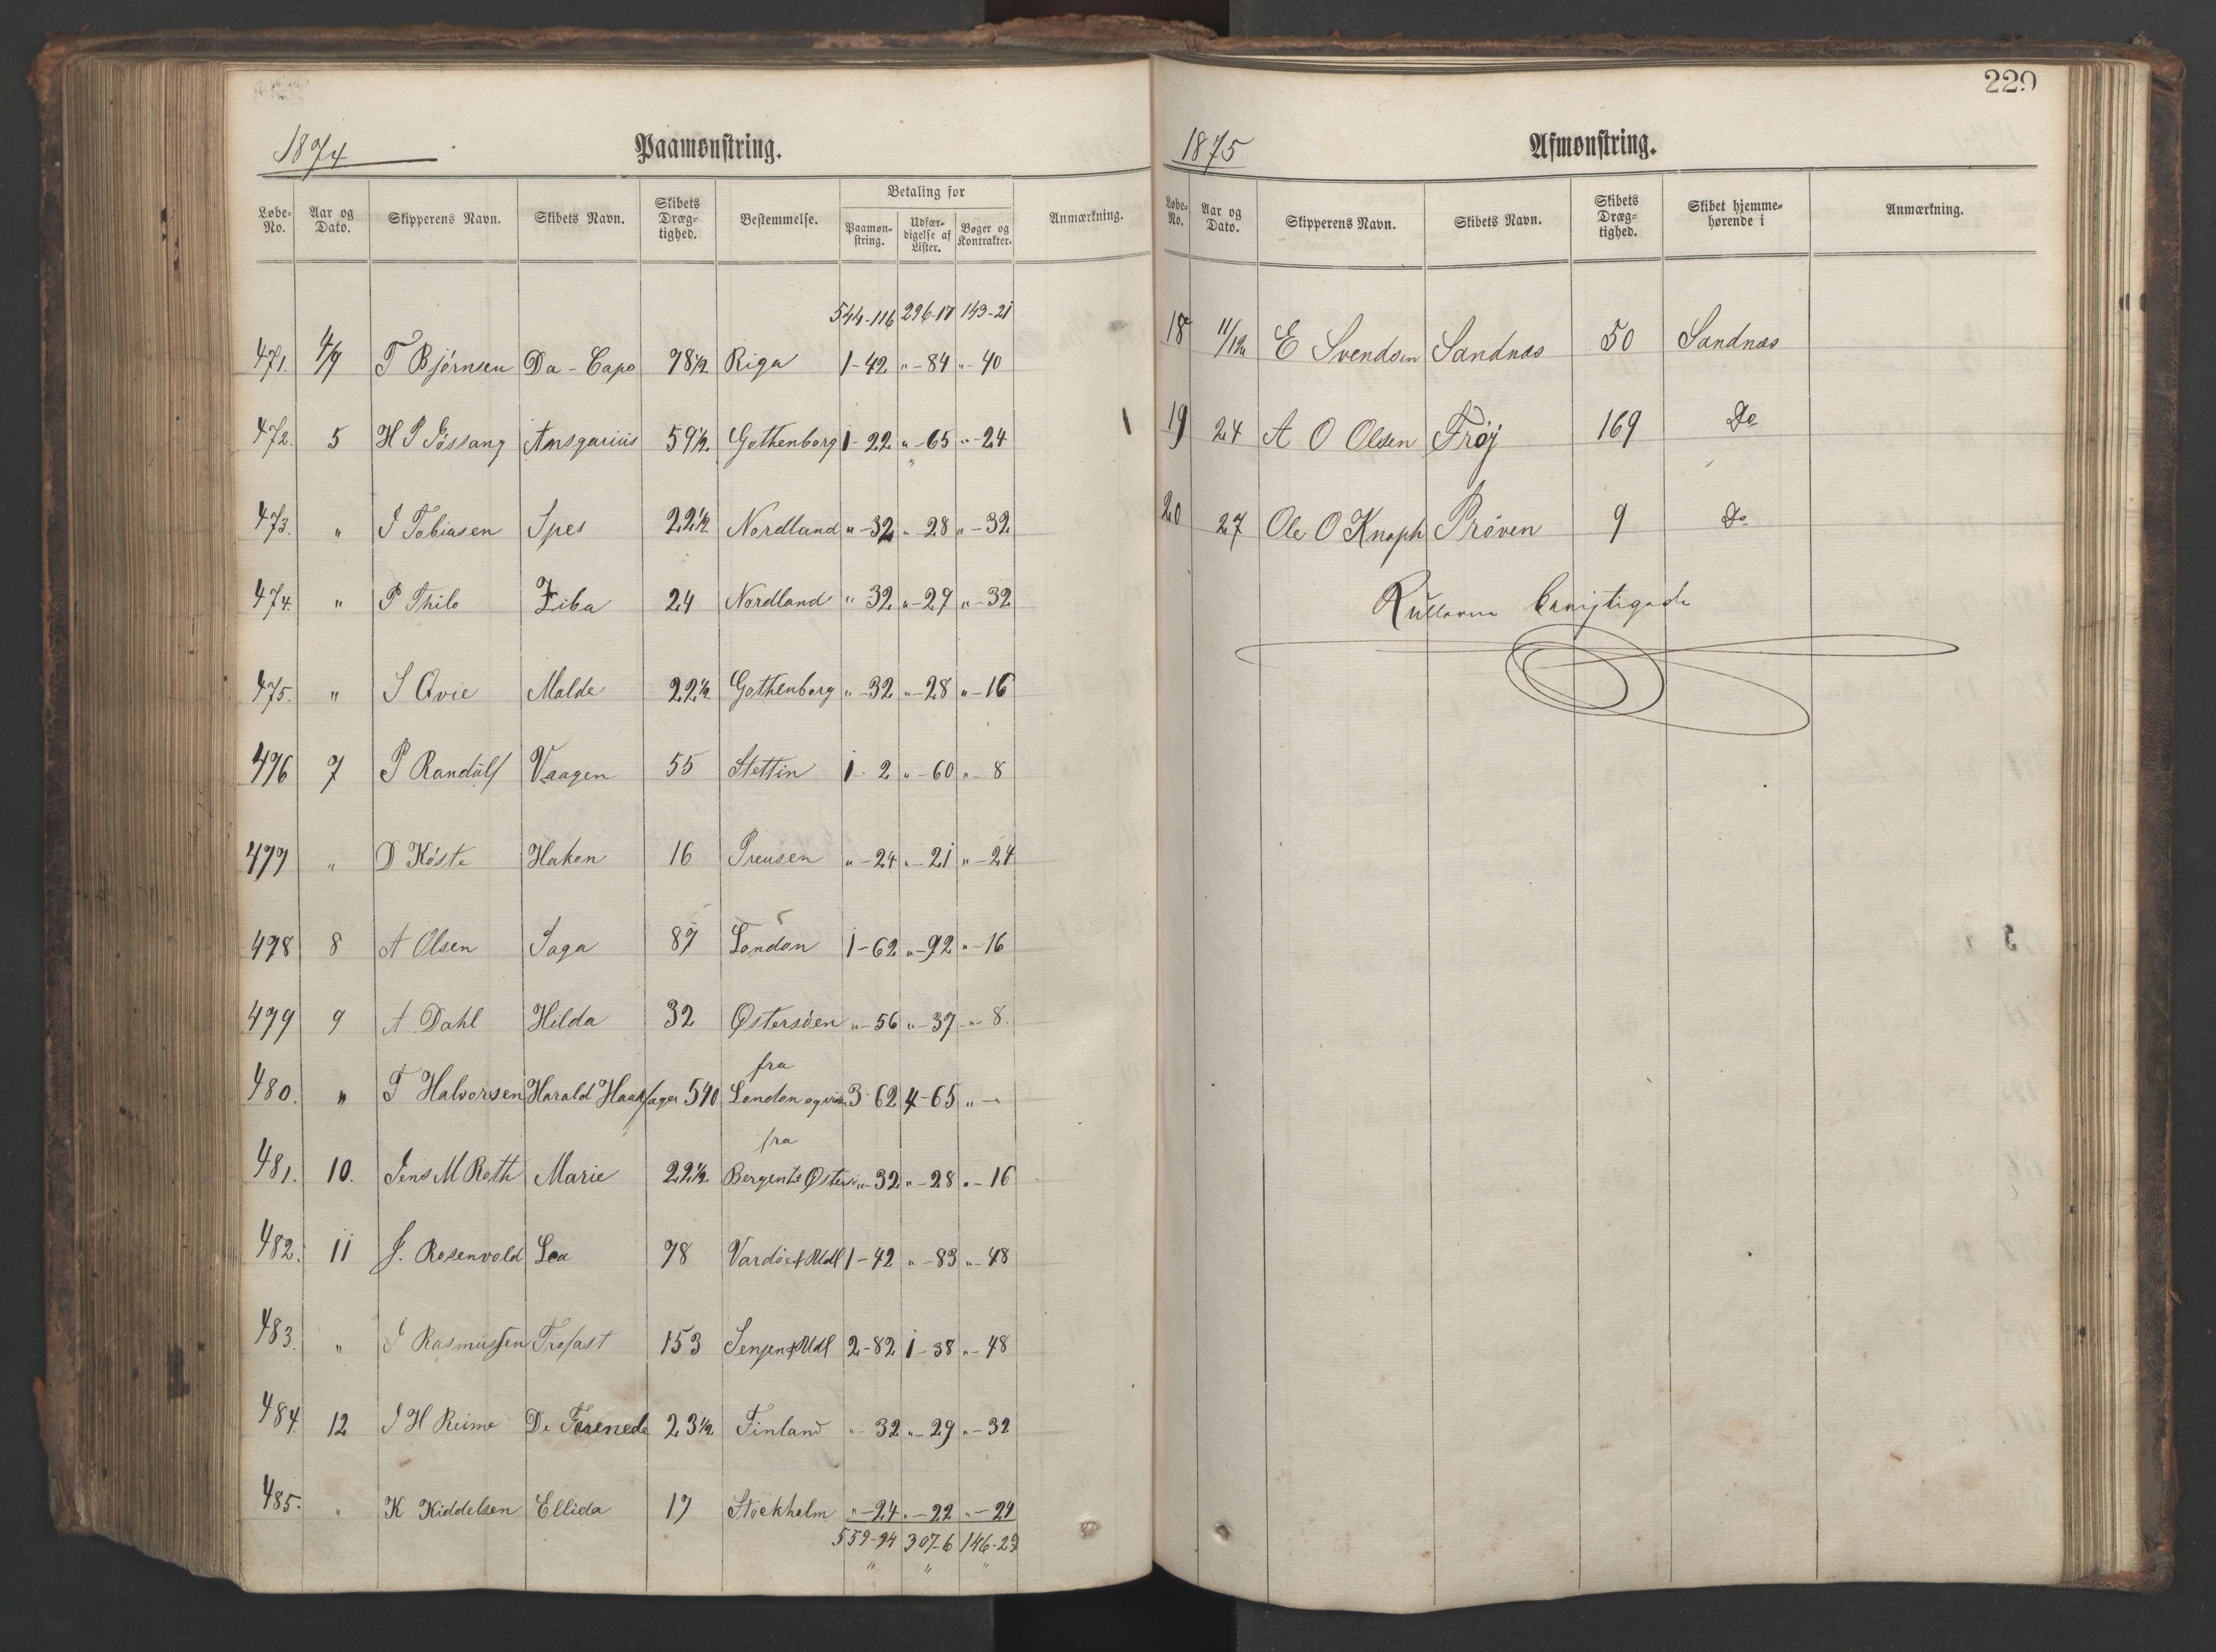 1874
Paamønstring.
Løbe-No. Aar og Dato. Skipperens Navn. Skibets Navn. Skibets Dræg-tighed. Bestemmelse. Betaling for Paamøn-string. Udfær-digelse af Lister. Bøger og Kontrakter. Anmærkning.
544-116 296-17 143-21
471. 4/9 T Bjørnsen Da-Capo 78 1/2 Riga 1-42 "-84 "-40
472. 5 H P Jössang Ansgarius 59 1/2 Gothenborg 1-22 "-65 "-24
473. " J Tobiasen Spes 22 1/2 Nordland "-32 "-28 "-32
474. " P Thilo Ziba 24 Nordland " 32 "-29 "-32
475. " S Qvie Malde 22 1/2 Gothenborg "-32 "-28 "-16
476 7 P Randulf Vaagen 55 Stettin 1-2 "-60 "-8
477 " D Köste Hakon 16 Preusen "-24 "-21 "-24
478 8 A Olsen Saga 87 London 1-62 "-92 "-16
479 9 A Dahl Hilda 32 Østersöen "-56 "-37 "-8.
fra
480. " T Halvorsen Harald Haarfager 540 London og 3-62 4-65 "-"
fra
481. 10. Jens M Roth Marie 22 1/2 Bergen "-32 "-28 "-16
482. 11 J. Rosenvold Lea 78 Vardö & Udl 1-42 "-83 "-48
483. " J Rasmussen Trofast 153 Senjen & Udl 2-82 1-38 "-48
484. 12 J H Reime De Forenede 23 1/2 Finland "-32 "-29 "-32
485. " K Kiddelsen Ellida 17 Stockholm "-24 "-22 "-24
559-94 307-6 146-29
229
1875
Afmønstring.
Løbe-No. Aar og Dato. Skipperens Navn. Skibets Navn. Skibets Dræg-tighed. Skibet hjemme-hørende i Anmærkning.
18 11/12 E Svendsen Sandnæs 50 Sandnæs
19 24 A O Olsen Frøj 169 Do
20 27 Ole O Knaph Pröven 9 Do